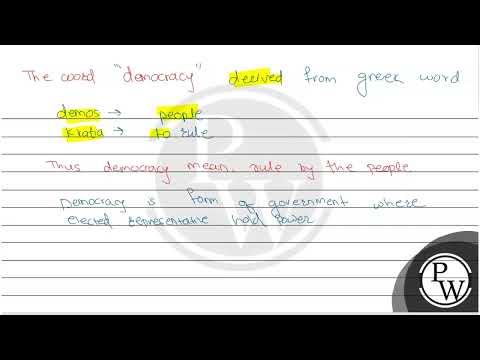 The word "democracy" derived from greek word
demos → people
kratia → to rule
Thus democracy mean. rule by the people
Democracy is form of government where
elected representative hold power
PW
PW